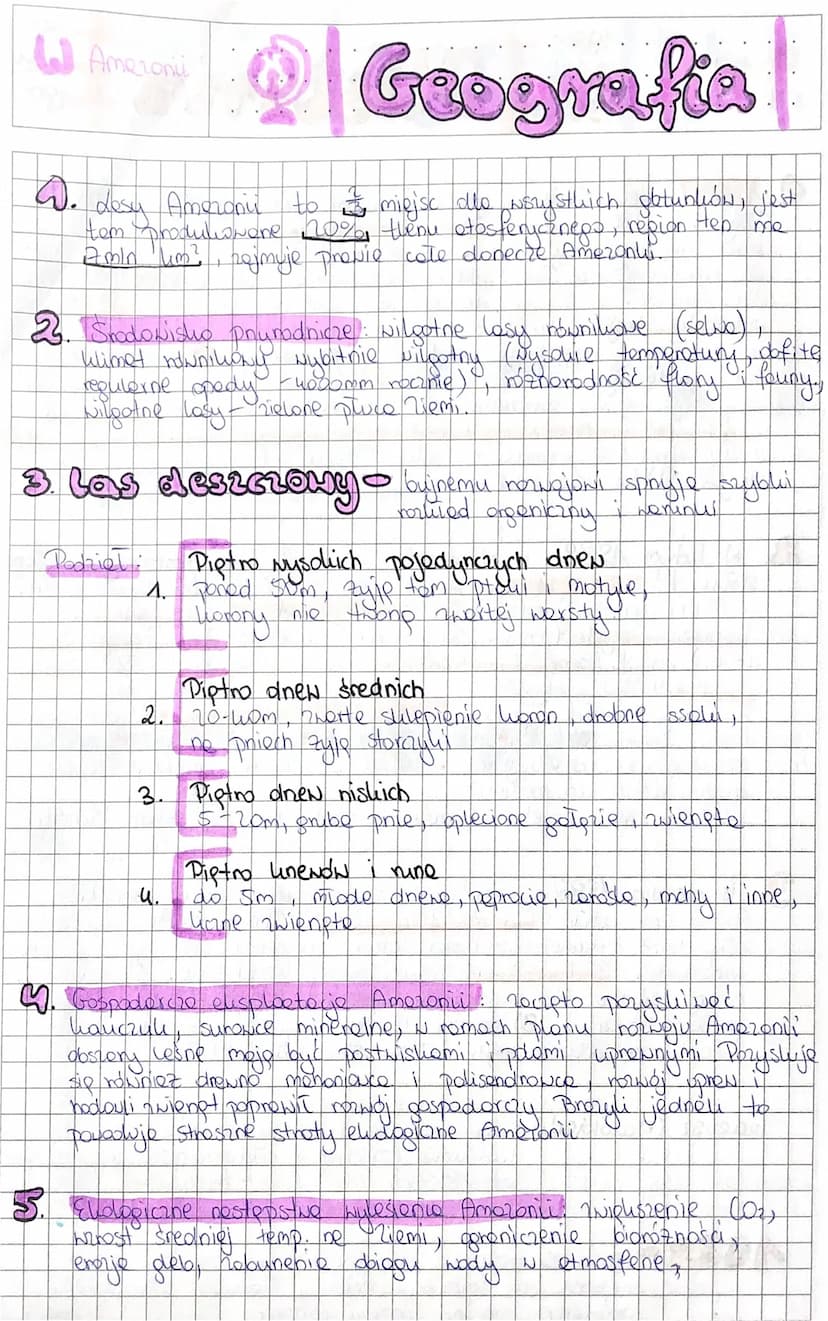 W Amazonii
Geografia
1. Lasy Amazonii to 2/3 miejsc dla wszystkich gatunków, jest
tam produkowane 20% tlenu atosferycznego, region ten ma
7mln km², zajmuje prawie całe dorzecze Amazonki.
2. Środowisko przyrodnicze: wilgotne lasy równikowe (selwa),
klimat równikowy wybitnie wilgotny (wysokie temperatury, obfite
regularne opady - 4000mm rocznie), różnorodność flory i fauny,
wilgotne lasy - zielone płuca Ziemi.
3. Las deszczowy - bujnemu rozwojowi sprzyja szybki
rozkład organiczny i warunki
Podział:
Piętro wysokich pojedynczych drzew
1. ponad 50m, żyją tam ptaki i motyle,
korony nie tworzą zwartej warsty
Piętro drzew średnich
2. 20-40m, zwarte sklepienie koron, drobne ssaki,
na pniach żyją storczyki
3. Piętro drzew niskich
5-20m, grube pnie, oplecione gałęzie, zwierzęta
Piętro krzewów i runa
4. do 5m, młode drzewa, paprocie, zarośla, mchy i inne,
liczne zwierzęta
4. Gospodarcza eksploatacja Amazonii: zaczęto pozyskiwać
kauczuk, surowce mineralne, w ramach planu rozwoju Amazonii
obszary leśne mają być pastwiskami i polami uprawnymi. Pozyskuje
się również drewno mahoniowca i palisandrowca, rozwój upraw i
hodowli zwierząt poprawił rozwój gospodarczy Brazyli jednak to
powoduje straszne straty ekologiczne Amazonii
5. Ekologiczne następstwa wylesienia Amazonii: zwiększenie CO₂,
wzrost średniej temp. na Ziemi, ograniczenie bioróżności,
erozja gleb, zaburzenie obiegu wody w atmosferze,